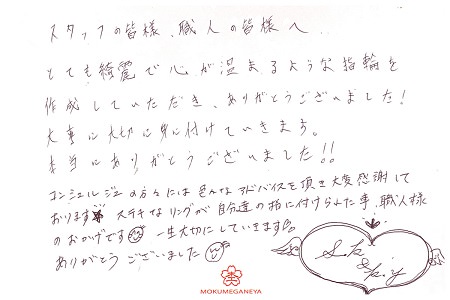 スタッフの皆様、職人の皆様へ
とても綺麗で心が温まるような指輪を
作成していただき、ありがとうございました!
大事に大切に身に付けていきます。
本当にありがとうございました!!
コンシェルジュの方々には色んなアドバイスを頂き大変感謝して
おります ステキなリングが自分達の指に付けられた事、職人様
のおかげです 一生大切にしていきます。
ありがとうございました
MOKUMEGANEYA